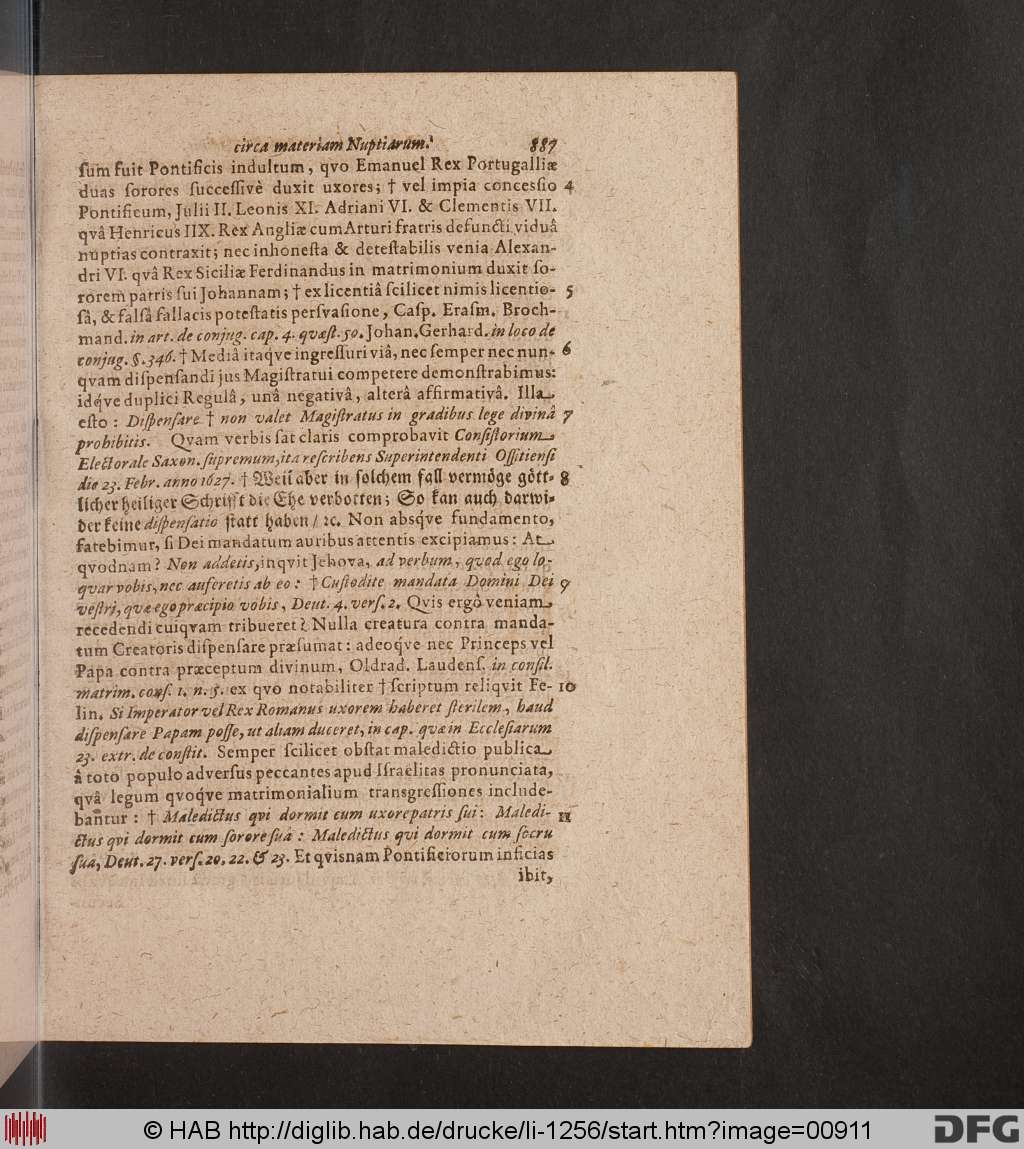 circa materiam Nuptiarum. 887
ſum fuit Pontificis indultum, qvo Emanuel Rex Portugalliæ
duas ſorores ſucceſſivè duxit uxores; † vel impia conceſſio 4
Pontificum, Julii II. Leonis XI. Adriani VI. & Clementis VII.
qvâ Henricus IIX. Rex Angliæ cum Arturi fratris defuncti viduâ
nuptias contraxit; nec inhoneſta & deteſtabilis venia Alexan-
dri VI. qvâ Rex Siciliæ Ferdinandus in matrimonium duxit ſo-
rorem patris ſui Johannam; † ex licentiâ ſcilicet nimis licentio- 5
ſâ, & falſâ fallacis poteſtatis perſvaſione, Caſp. Eraſm. Broch-
mand. in art. de conjug. cap. 4. quæſt. 50. Johan. Gerhard. in loco de
conjug. §. 346. † Mediâ itaq́ve ingreſſuri viâ, nec ſemper nec nun- 6
qvam diſpenſandi jus Magiſtratui competere demonſtrabimus:
idq́ve duplici Regulâ, unâ negativâ, alterâ affirmativâ. Illa
eſto: Diſpenſare † non valet Magiſtratus in gradibus lege divinâ 7
prohibitis. Qvam verbis ſat claris comprobavit Conſiſtorium
Electorale Saxon. ſupremum, ita reſcribens Superintendenti Oſſitienſi
die 23. Febr. anno 1627. † Weil aber in ſolchem fall vermöge gött- 8
licher heiliger Schrifft die Ehe verbotten; So kan auch darwi-
der keine diſpenſatio ſtatt haben / ꝛc. Non absq́ve fundamento,
fatebimur, ſi Dei mandatum auribus attentis excipiamus: At
qvodnam? Non addetis, inqvit Jehova, ad verbum, quod ego lo-
quar vobis, nec auferetis ab eo: † Cuſtodite mandata Domini Dei 9
veſtri, quæ ego præcipio vobis, Deut. 4. verſ. 2. Qvis ergò veniam
recedendi cuiqvam tribueret? Nulla creatura contra manda-
tum Creatoris diſpenſare præſumat: adeoq́ve nec Princeps vel
Papa contra præceptum divinum, Oldrad. Laudenſ. in conſil.
matrim. conſ. 1. n. 5. ex qvo notabiliter † ſcriptum reliqvit Fe- 10
lin. Si Imperator vel Rex Romanus uxorem haberet ſterilem, haud
diſpenſare Papam poſſe, ut aliam duceret, in cap. quæ in Eccleſiarum
23. extr. de conſtit. Semper ſcilicet obſtat maledictio publica
â toto populo adverſus peccantes apud Iſraëlitas pronunciata,
qvâ legum qvoq́ve matrimonialium transgreſſiones include-
bantur: † Maledictus qvi dormit cum uxore patris ſui: Maledi- 11
ctus qvi dormit cum ſorore ſuâ: Maledictus qvi dormit cum ſocru
ſuâ, Deut. 27. verſ. 20. 22. & 23. Et qviſnam Pontificiorum inficias
ibit,
© HAB http://diglib.hab.de/drucke/li-1256/start.htm?image=00911
DFG